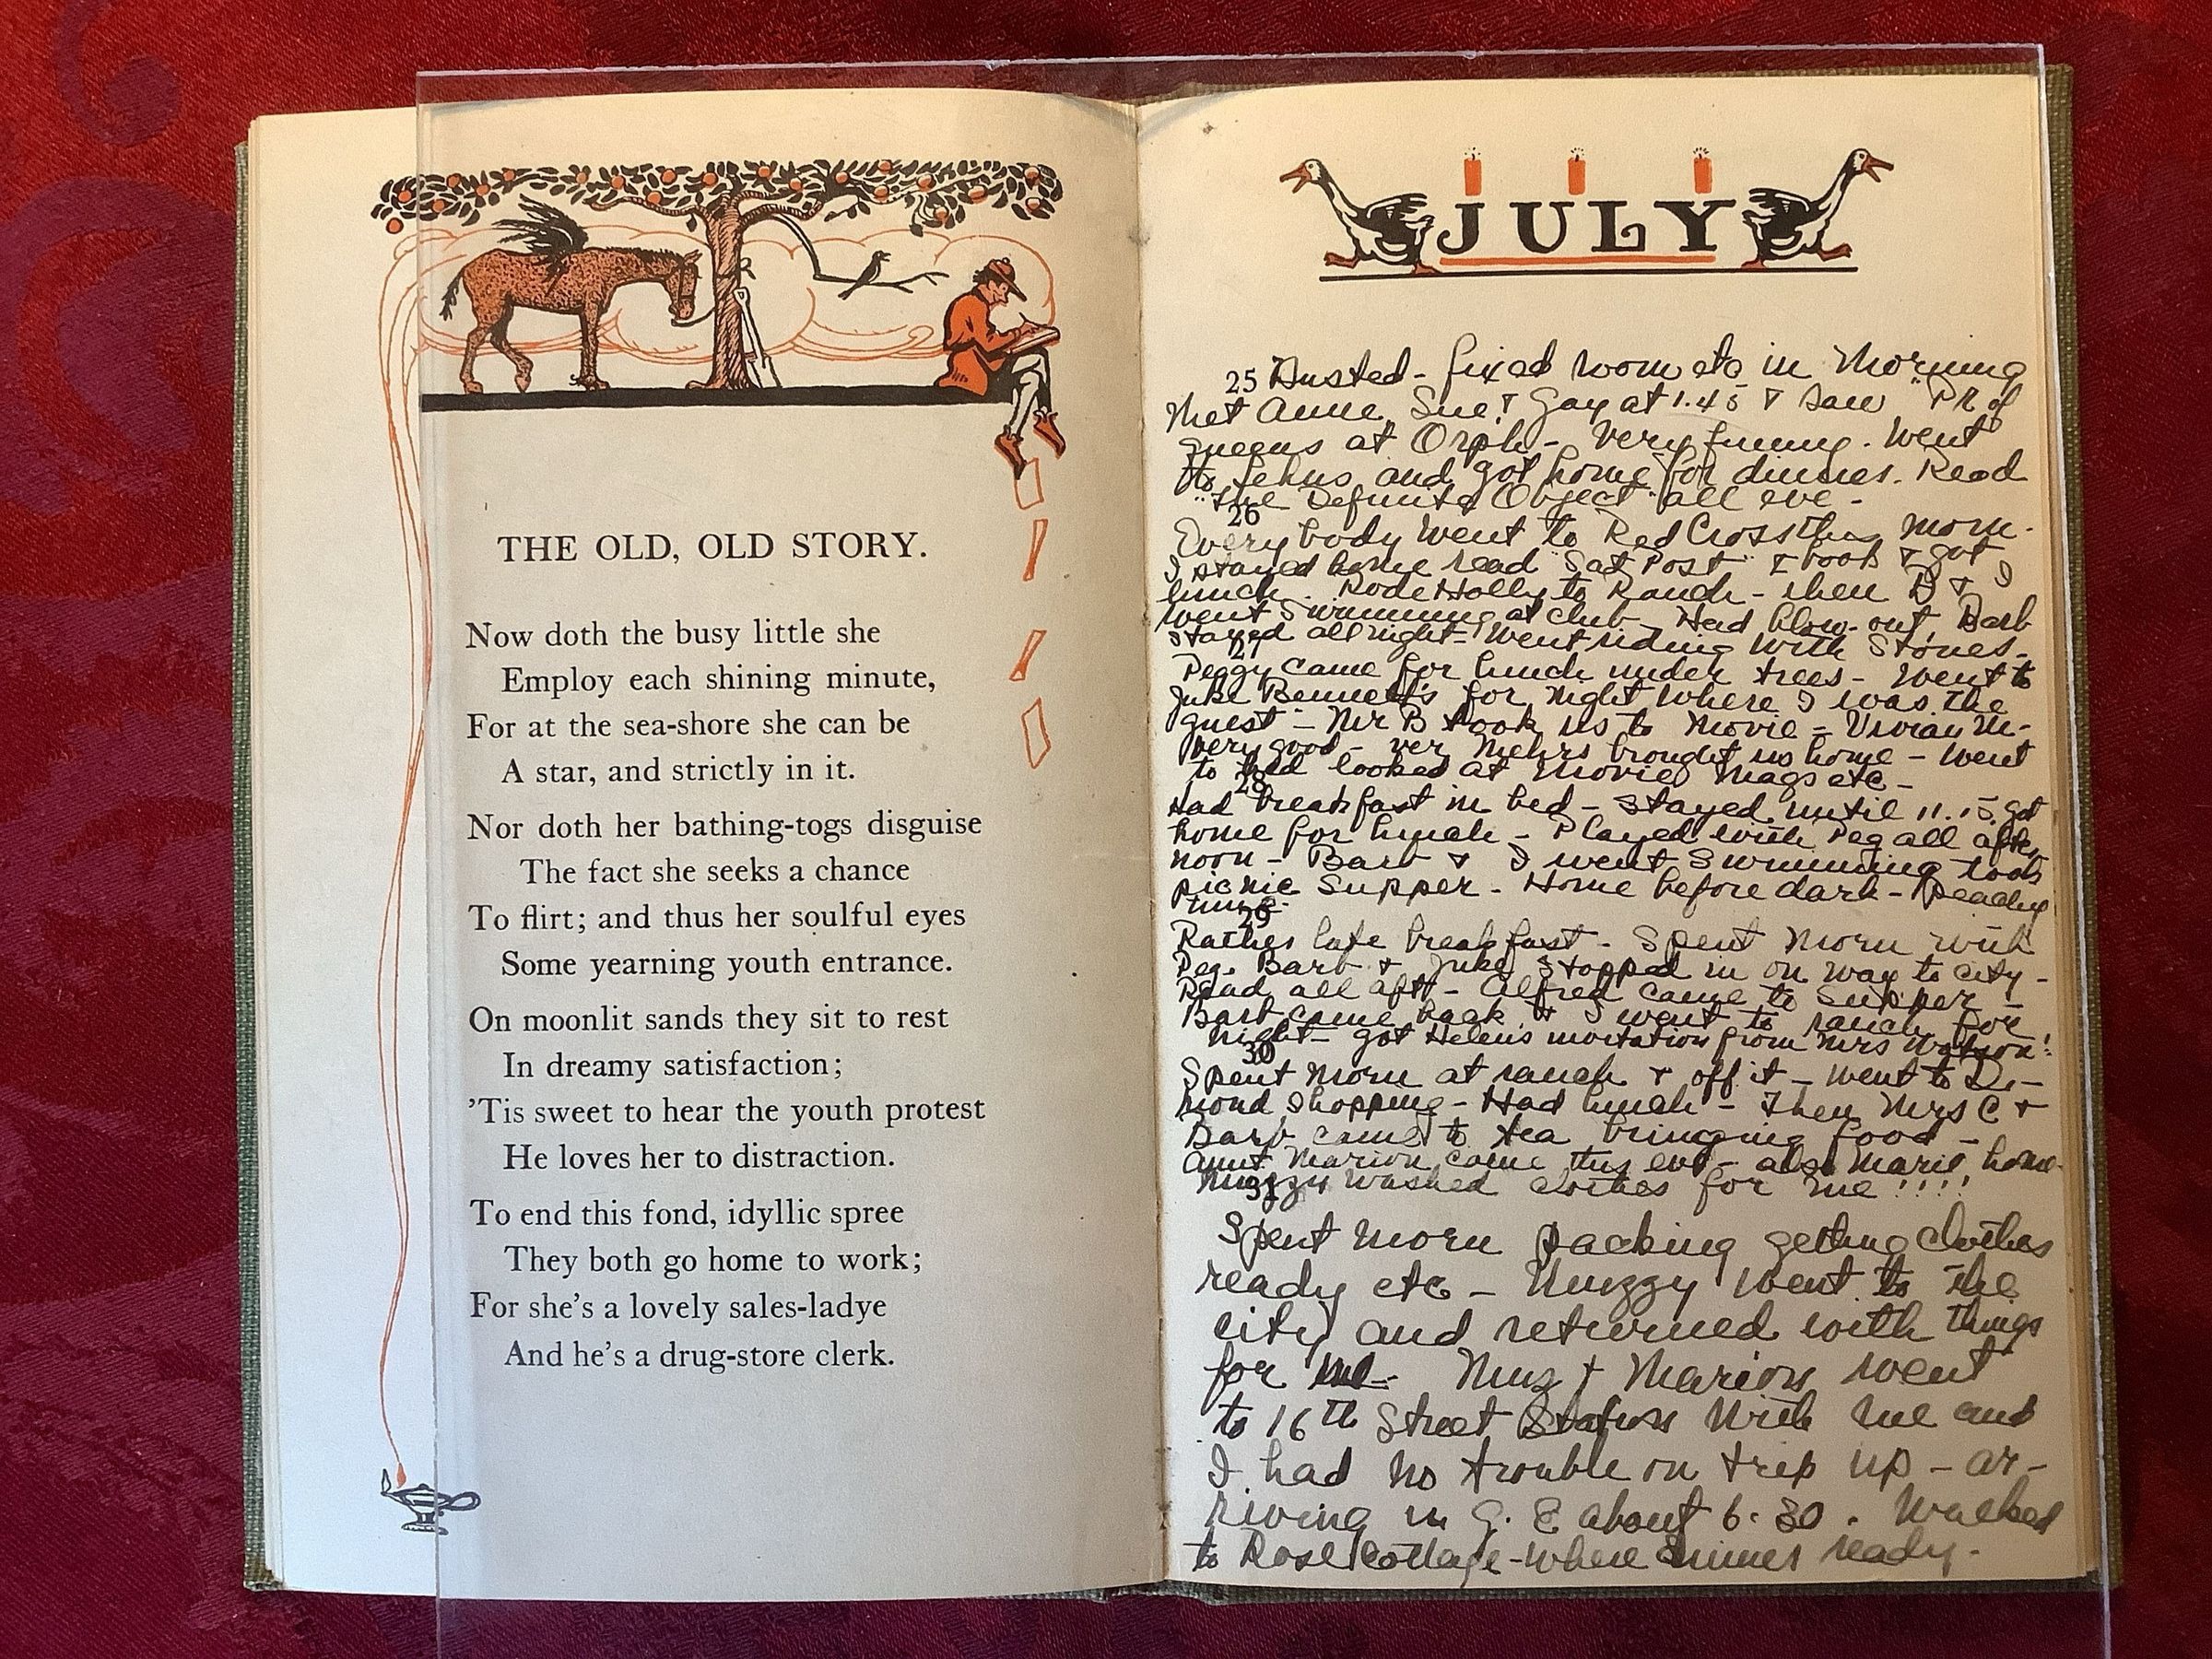 THE OLD, OLD STORY.
Now doth the busy little she
Employ each shining minute,
For at the sea-shore she can be
A star, and strictly in it.
Nor doth her bathing-togs disguise
The fact she seeks a chance
To flirt; and thus her soulful eyes
Some yearning youth entrance.
On moonlit sands they sit to rest
In dreamy satisfaction;
'Tis sweet to hear the youth protest
He loves her to distraction.
To end this fond, idyllic spree
They both go home to work;
For she's a lovely sales-ladye
And he's a drug-store clerk.
JULY
25 Dusted - fixed room etc in Morning
Met Anne, Sue & Gay at 1.45 & saw "Pk of
Queens at Orph - Very funny. Went
to Lehns and got home for dinner. Read
"The Definite Object" all eve -
26
Everybody went to Red Cross this morn.
I stayed home read "Sat Post" & book & got
lunch. Rode Holly to Ranch - then B & I
went Swimming at club - Had blow-out, Barb
stayed all night - Went riding with Stones.
27
Peggy came for lunch under trees - Went to
Juke Bennett's for night where I was the
guest - Mr B took us to Movie - Vivian M-
very good - Mehrs brought us home - Went
to bed looked at Movie Mags etc -
28
Had breakfast in bed - Stayed until 11.15 got
home for lunch - Played with Peg all after
noon - Barb & I went Swimming took
picnic Supper - Home before dark - Peachy
time -
29
Rather late breakfast - Spent Morn with
Peg. Barb & Juke Stopped in on way to city -
Read all aft - Alfred came to Supper -
Barb came back & I went to ranch for
night - got Helen's invitation from Mrs Watson!
30
Spent Morn at ranch & off it - Went to Di-
mond Shopping - Had lunch - Then Mrs C &
Barb came to tea bringing food -
Aunt Marion came this eve - also Marie, home.
Muggy washed clothes for me!!!!
31
Spent Morn packing getting clothes
ready etc - Muggy went to the
city and returned with things
for me - Mug & Marion went
to 16th Street Station with me and
I had no trouble on trip up - ar-
riving in G. E about 6.30. Walked
to Rose Cottage - where dinner ready.